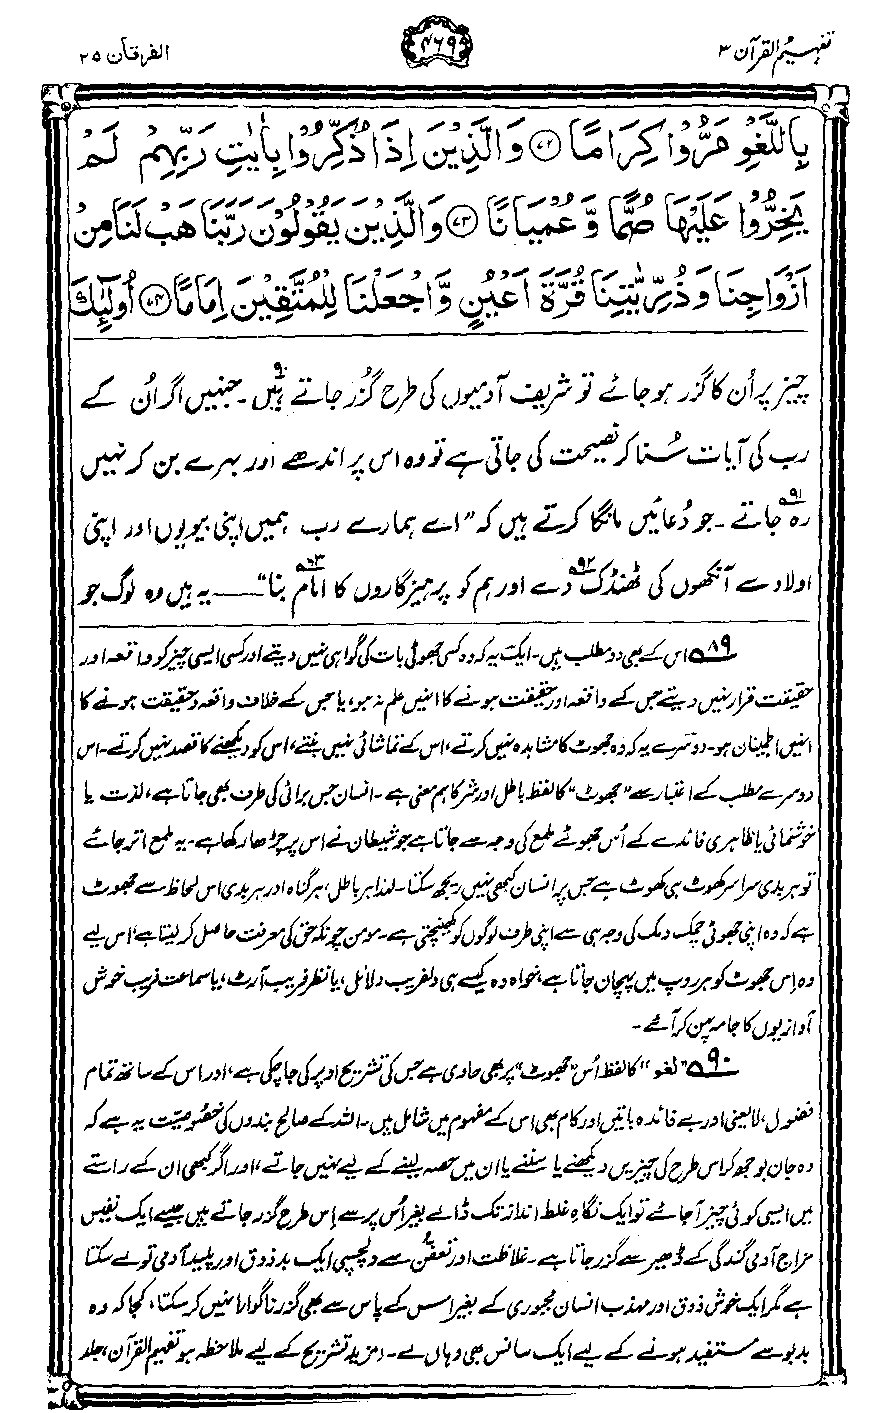 تفہیم القرآن ۳
۴۶۹
الفرقان ۲۵
بِاللَّغْوِ مَرُّوْا كِرَامًا ﴿۷۲﴾ وَالَّذِيْنَ اِذَا ذُكِّرُوْا بِاٰيٰتِ رَبِّهِمْ لَمْ
يَخِرُّوْا عَلَيْهَا صُمًّا وَّ عُمْيَانًا ﴿۷۳﴾ وَالَّذِيْنَ يَقُوْلُوْنَ رَبَّنَا هَبْ لَنَا مِنْ
اَزْوَاجِنَا وَ ذُرِّيّٰتِنَا قُرَّةَ اَعْيُنٍ وَّاجْعَلْنَا لِلْمُتَّقِيْنَ اِمَامًا ﴿۷۴﴾ اُولٰٓئِكَ
چیز پر اُن کا گزر ہو جائے تو شریف آدمیوں کی طرح گزر جاتے ہیں۹۰۔ جنہیں اگر اُن کے
رب کی آیات سُنا کر نصیحت کی جاتی ہے تو وہ اس پر اندھے اور بہرے بن کر نہیں
رہ جاتے۹۱۔ جو دُعائیں مانگا کرتے ہیں کہ ”اے ہمارے رب ہمیں اپنی بیویوں اور اپنی
اولاد سے آنکھوں کی ٹھنڈک۹۲ دے اور ہم کو پرہیزگاروں کا امام۹۳ بنا“ــــ یہ ہیں وہ لوگ جو
۸۹ اس کے بھی دو مطلب ہیں۔ ایک یہ کہ وہ کسی جھوٹی بات کی گواہی نہیں دیتے اور کسی ایسی چیز کو واقعہ اور
حقیقت قرار نہیں دیتے جس کے واقعہ اور حقیقت ہونے کا انہیں علم نہ ہو، یا جس کے خلاف واقعہ و حقیقت ہونے کا
انہیں اطمینان ہو۔ دوسرے یہ کہ وہ جھوٹ کا مشاہدہ نہیں کرتے، اس کے تماشائی نہیں بنتے، اس کو دیکھنے کا قصد نہیں کرتے۔ اس
دوسرے مطلب کے اعتبار سے ”جھوٹ“ کا لفظ باطل اور شر کا ہم معنی ہے۔ انسان جس برائی کی طرف بھی جاتا ہے، لذت یا
خوشنمائی یا ظاہری فائدے کے اُس جھوٹے ملمع کی وجہ سے جاتا ہے جو شیطان نے اس پر چڑھا رکھا ہے۔ یہ ملمع اتر جائے
تو ہر بدی سراسر کھوٹ ہی کھوٹ ہے جس پر انسان کبھی نہیں ریجھ سکتا۔ لہٰذا ہر باطل، ہر گناہ اور ہر بدی اس لحاظ سے جھوٹ
ہے کہ وہ اپنی جھوٹی چمک دمک کی وجہ ہی سے اپنی طرف لوگوں کو کھینچتی ہے۔ مومن چونکہ حق کی معرفت حاصل کر لیتا ہے، اس لیے
وہ اِس جھوٹ کو ہر روپ میں پہچان جاتا ہے، خواہ وہ کیسے ہی دلفریب دلائل، یا نظر فریب آرٹ، یا سماعت فریب خوش
آوازیوں کا جامہ پہن کر آئے۔
۹۰ ”لغو“ کا لفظ اُس ”جھوٹ“ پر بھی حاوی ہے جس کی تشریح اوپر کی جا چکی ہے، اور اس کے ساتھ تمام
فضول، لایعنی اور بے فائدہ باتیں اور کام بھی اس کے مفہوم میں شامل ہیں۔ اللہ کے صالح بندوں کی خصُوصیّت یہ ہے کہ
وہ جان بوجھ کر اس طرح کی چیزیں دیکھنے یا سننے یا ان میں حصہ لینے کے لیے نہیں جاتے، اور اگر کبھی ان کے راستے
میں ایسی کوئی چیز آ جائے تو ایک نگاہِ غلط انداز تک ڈالے بغیر اُس پر سے اِس طرح گزر جاتے ہیں جیسے ایک نفیس
مزاج آدمی گندگی کے ڈھیر سے گزر جاتا ہے۔ غلاظت اور تعفّن سے دلچسپی ایک بد ذوق اور پلید آدمی تو لے سکتا
ہے مگر ایک خوش ذوق اور مہذب انسان مجبوری کے بغیر اس کے پاس سے بھی گزرنا گوارا نہیں کر سکتا، کجا کہ وہ
بدبو سے مستفید ہونے کے لیے ایک سانس بھی وہاں لے۔ (مزید تشریح کے لیے ملاحظہ ہو تفہیم القرآن، جلد